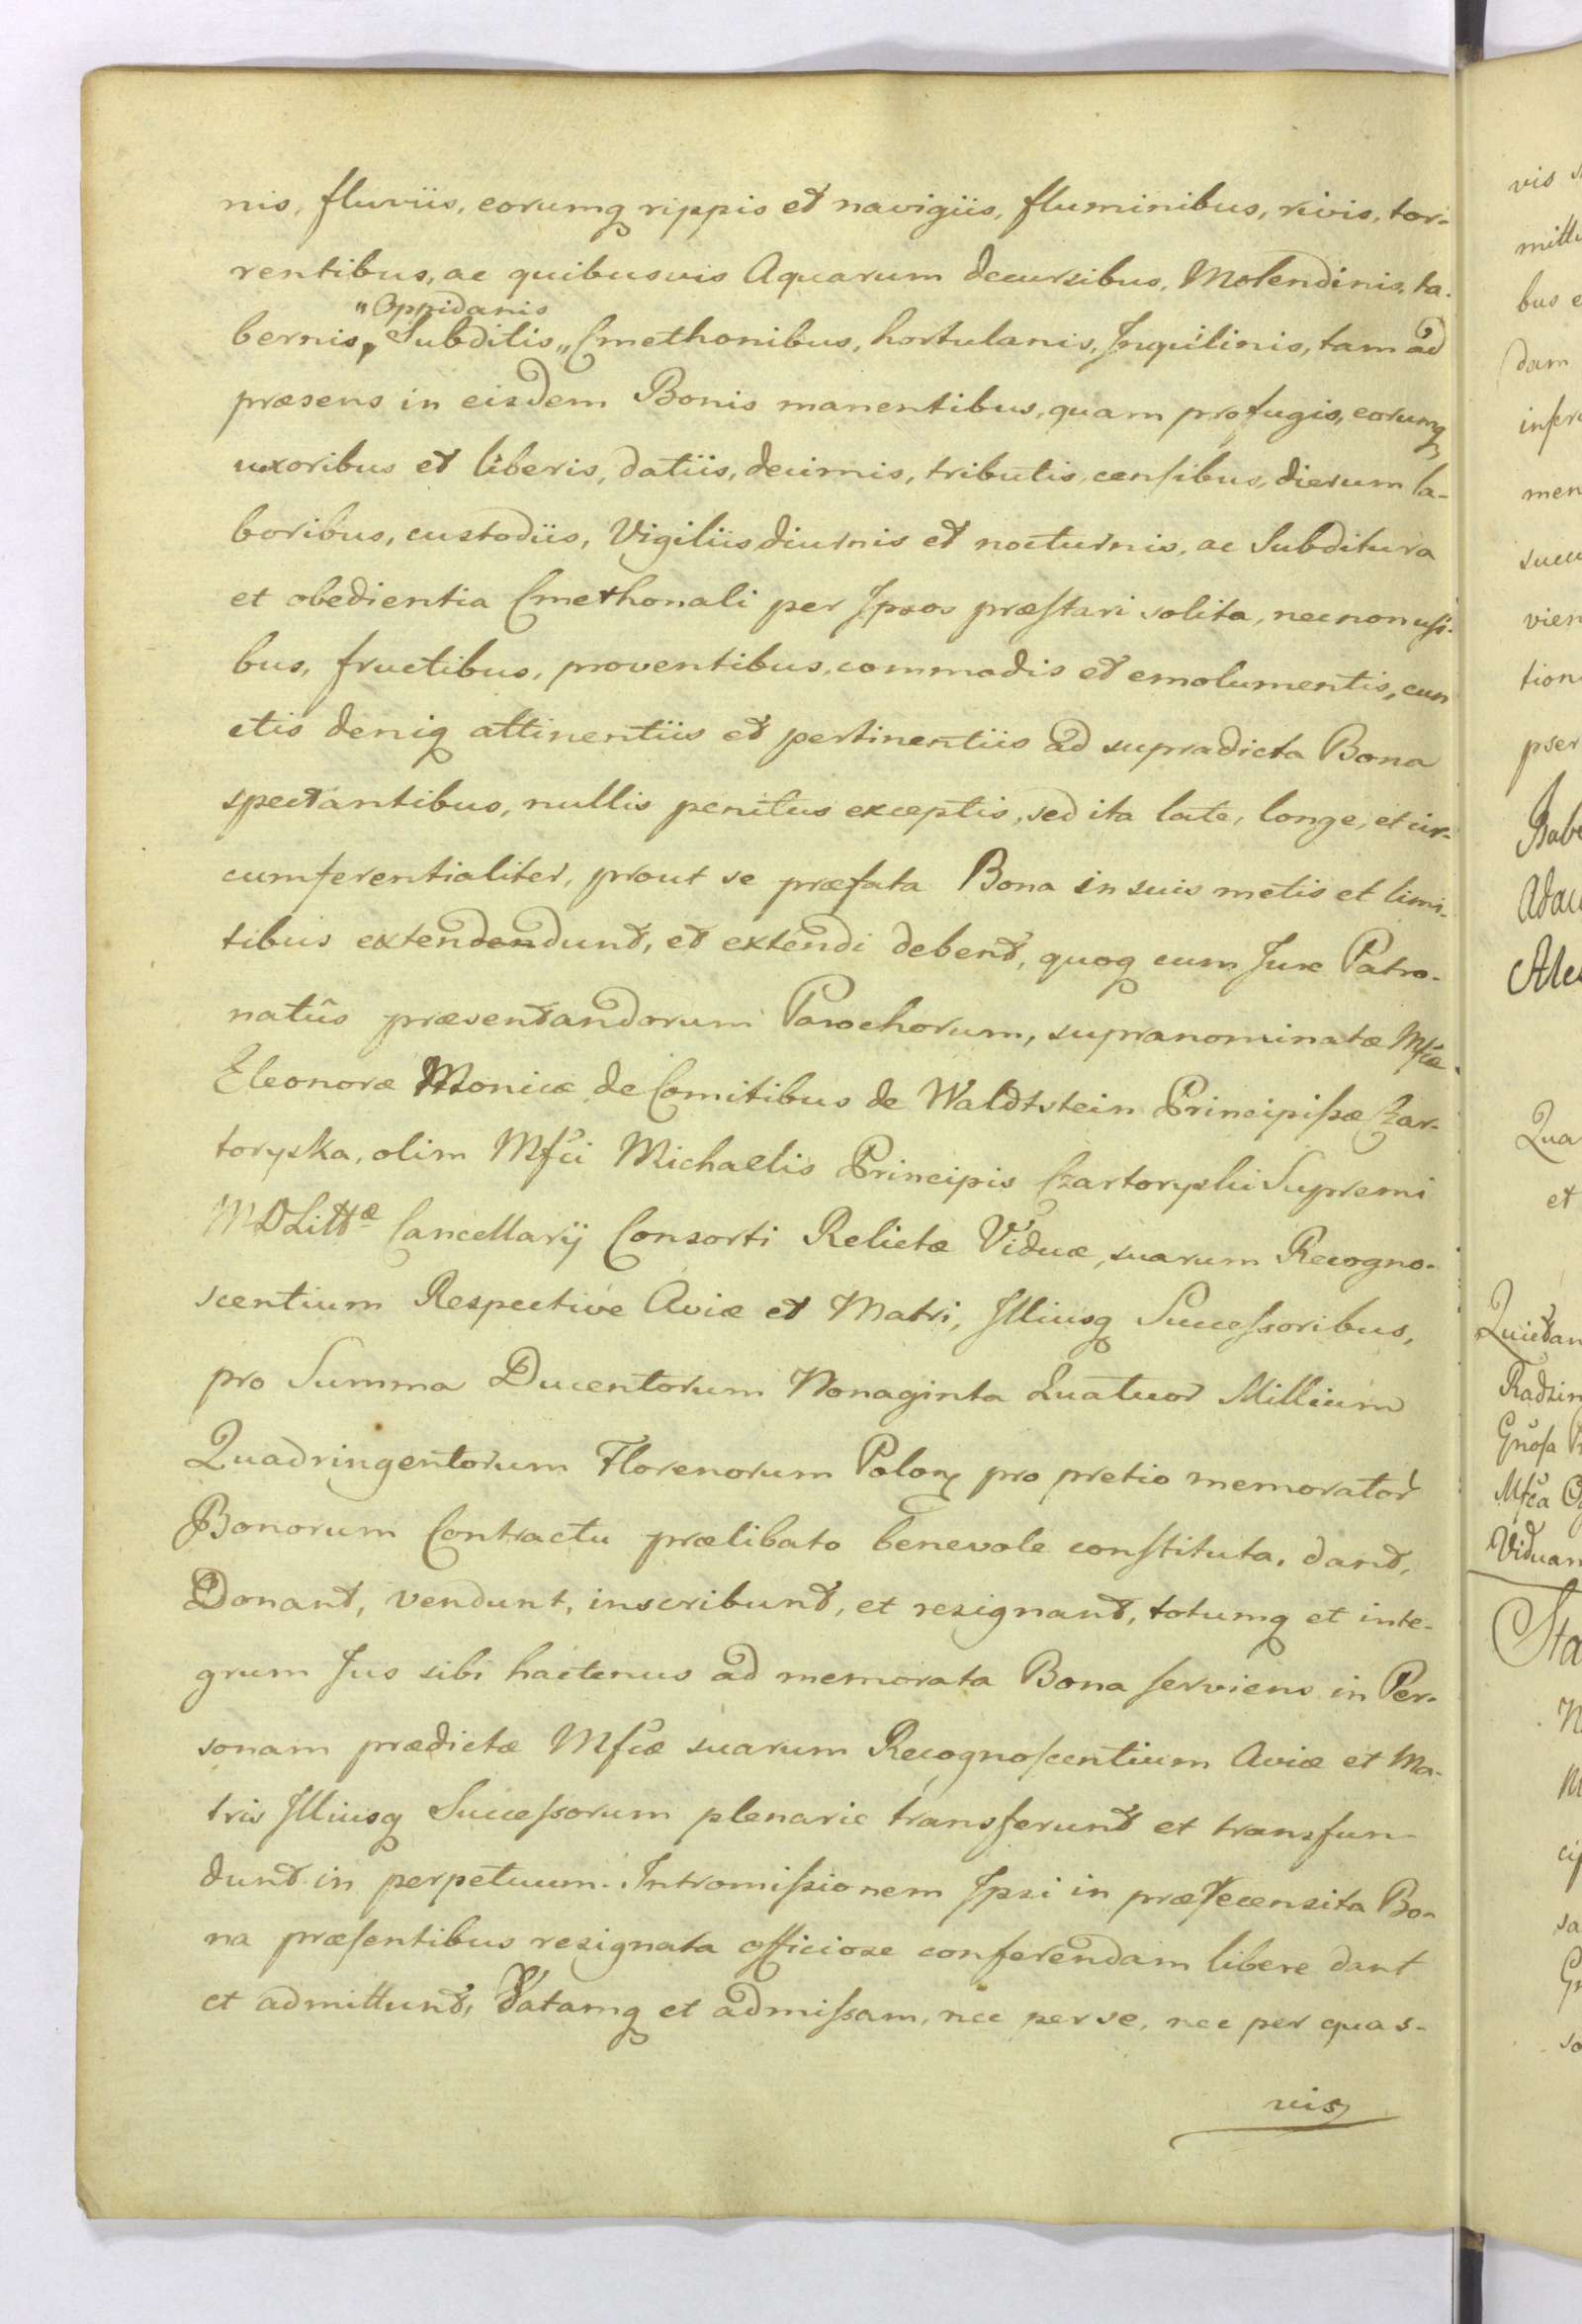 nis, fluviis, eorumq rippis et navigiis, fluminibus, rivis, tor-
rentibus, ac quibusvis Aquarum decursibus, Molendinis, ta-
"Oppidanis
bernis, Subditis „ Cmethonibus, hortulanis, Inquilinis, tam ad
præsens in eisdem Bonis manentibus, quam profugis, eorumq
uxoribus et liberis, datiis, decimis, tributis, censibus, dierum la-
boribus, custodiis, Vigiliis diurnis et nocturnis, ac Subditura
et obedientia Cmethonali per Ipsos præstari solita, necnon usi-
bus, fructibus, proventibus, commodis et emolumentis, cun
ctis deniq attinentiis et pertinentiis ad supradicta Bona
spectantibus, nullis penitus exceptis, sed ita late, longe, et cir-
cumferentialiter, prout se præfata Bona in suis metis et limi-
tibus extendendunt, et extendi debent, quoq cum Jure Patro-
natûs præsentandorum Parochorum, supranominatæ Mfcæ
Eleonoræ Monicæ de Comitibus de Waldtstein Principissæ Czar-
toryska, olim Mfci Michaelis Principis Czartoryski Supremi
M D Littæ Cancellarij Consorti Relictæ Viduæ, suarum Recogno-
scentium Respective Aviæ et Matri, Illiusq Successoribus,
pro Summa Ducentorum Nonaginta Quatuor Millium
Quadringentorum Florenorum Polon pro pretio memorator
Bonorum Contractu prælibato benevole constituta, dant,
Donant, vendunt, inscribunt, et resignant, totumq et inte-
grum Jus sibi hactenus ad memorata Bona serviens in Per-
sonam prædictæ Mfcæ suarum Recognoscentium Aviæ et Ma-
tris Illiusq Successorum plenarie transferunt et transfun-
dunt in perpetuum. Intromissionem Ipsi in præfecensita Bo-
na præsentibus resignata officiose conferendam libere dant
et admittunt, Datamq et admissam, nec per se, nec per quas-
vis
vis
mittu
bus e
dam
infer
men
succe
vien
tion
pser
Qua
et
Quietan
Radzin
Gnosa
Mfca
Viduam
Sta